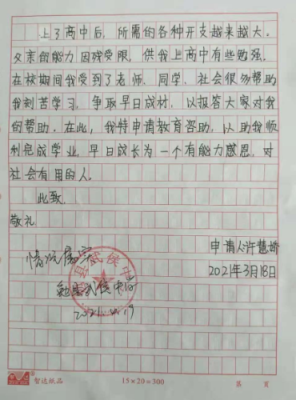 上了高中后，所需的各种开支越来越大。
父亲的能力因残受限，供我上高中有些勉强。
在校期间我受到了老师、同学、社会很多帮助
我刻苦学习，争取早日成材，以报答大家对我
的帮助。在此，我特申请教育资助，以助我顺
利完成学业，早日成长为一个有能力感恩，对
社会有用的人。
此致
敬礼
情况属实
申请人许慧
2021年3月18日
勉县武侯中学
智达纸品
15×20=300
第 页